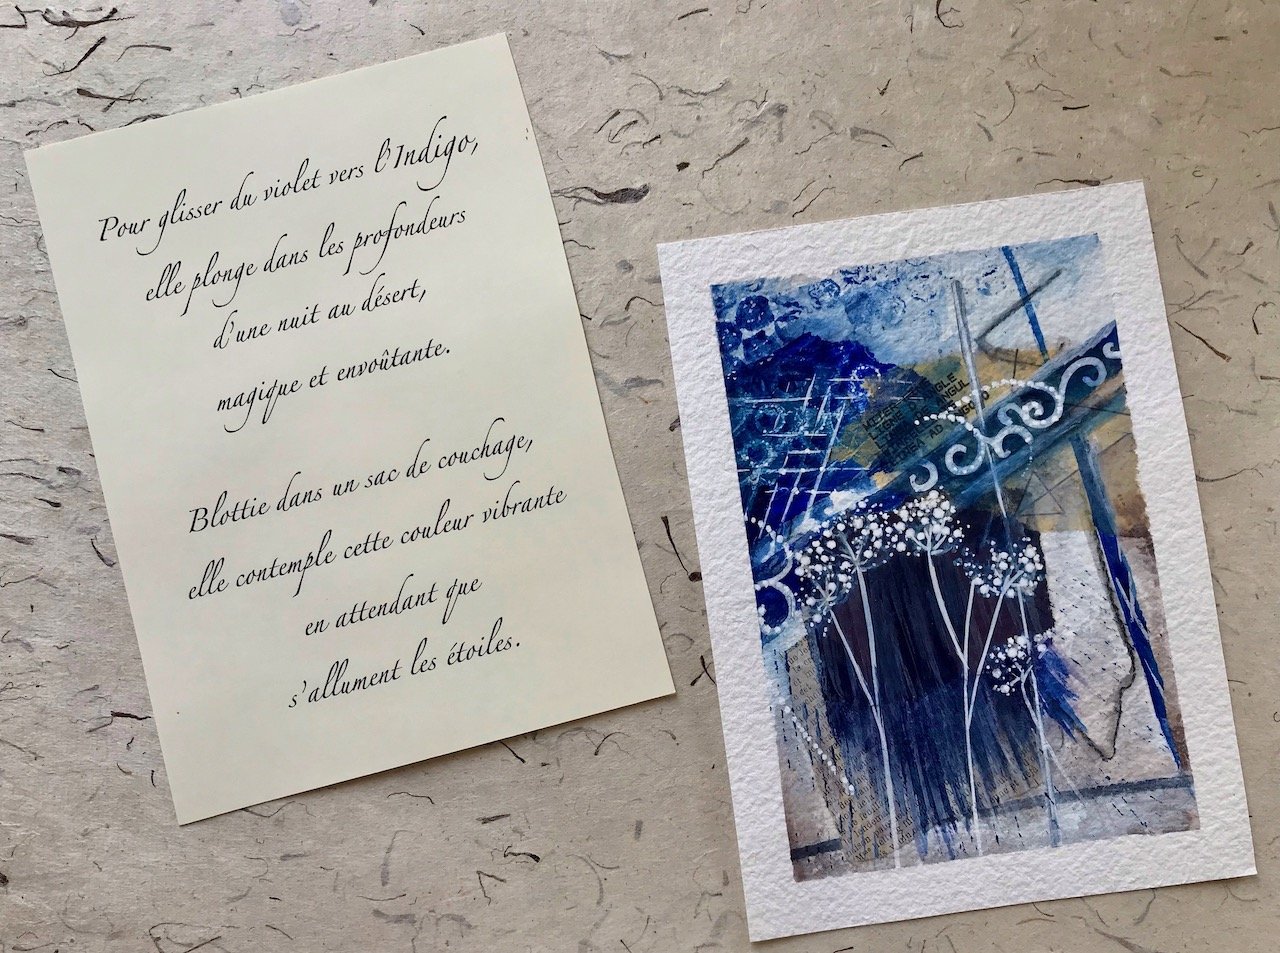 Pour glisser du violet vers l'Indigo,
elle plonge dans les profondeurs
d'une nuit au désert,
magique et envoûtante.
Blottie dans un sac de couchage,
elle contemple cette couleur vibrante
en attendant que
s'allument les étoiles.